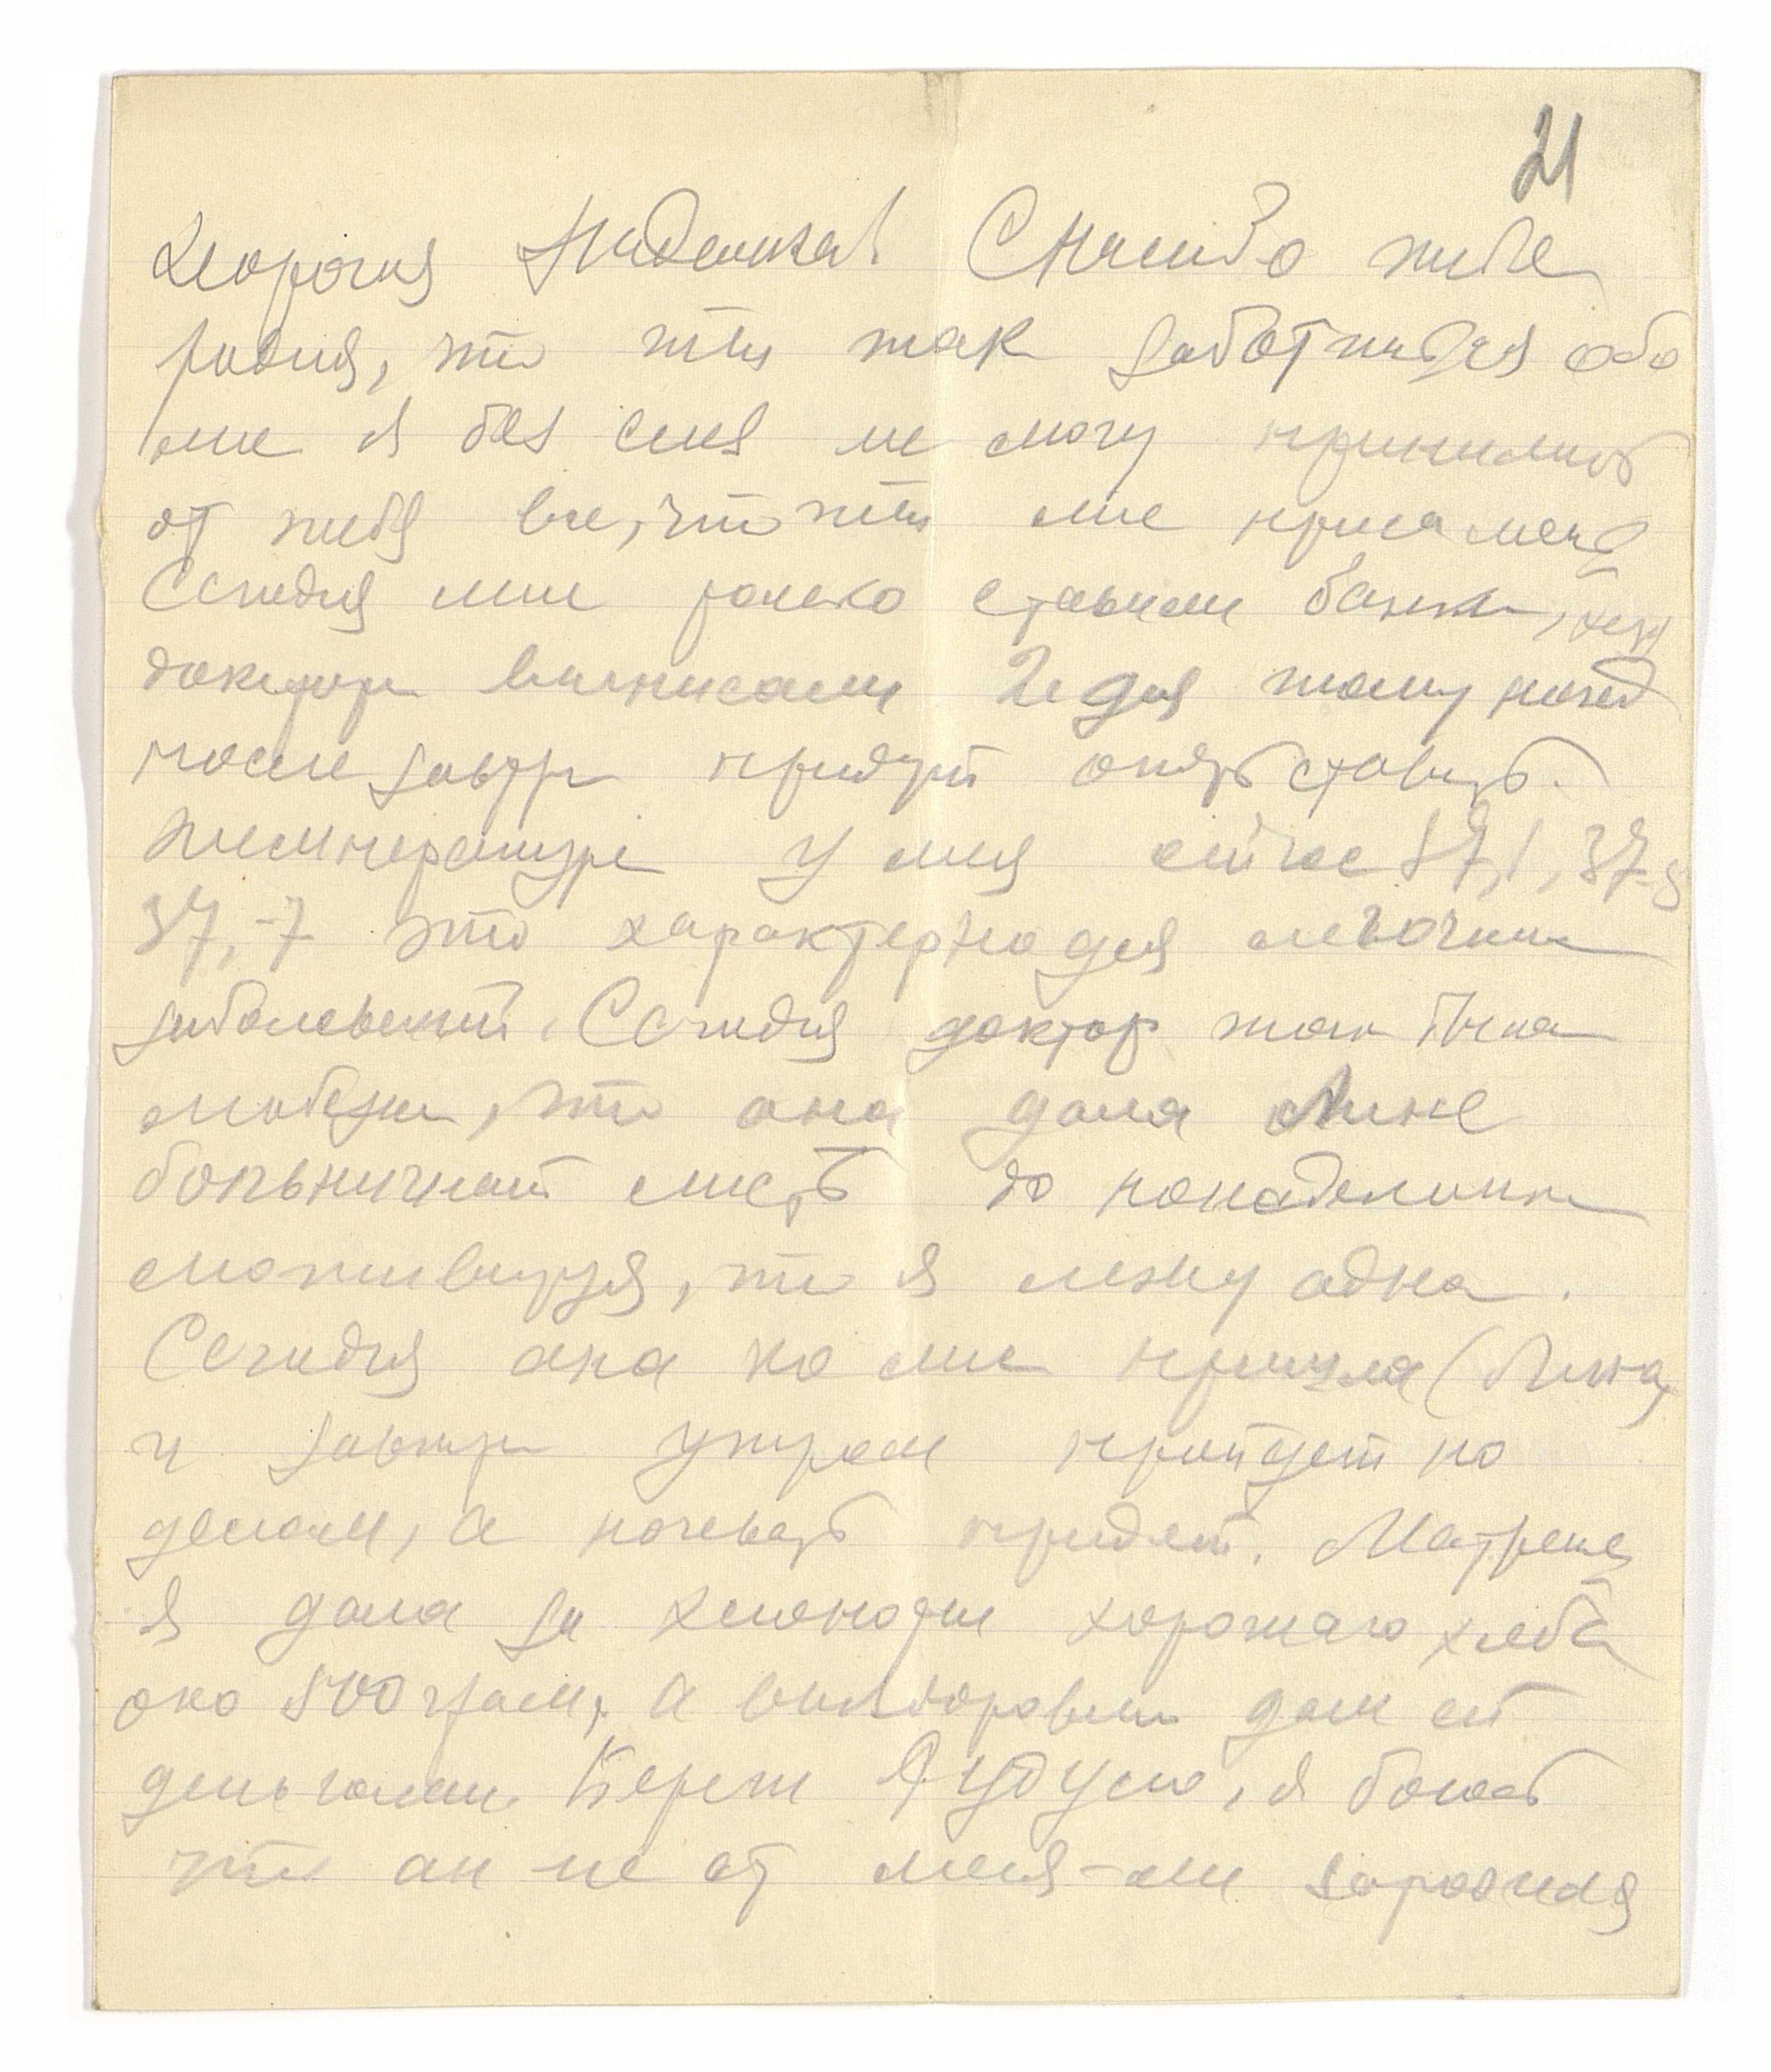 21
Дорогая Наденька! Спасибо тебе
родная, что ты так заботишься обо
мне я без слез не могу принимать
от тебя все, что ты мне присылаешь
Сегодня мне только ставили банки,
доктор выписали 2 дня тому назад
после завтра придут опять ставить.
температура у меня сейчас 37,1, 37-5
37,-7 это характерно для легочных
заболеваний. Сегодня доктор так была
любезна, что она дала Лине
больничный листь до понедельника
мотивируя, что я лежу одна.
Сегодня она ко мне пришла (Лина)
и завтра утром пройдет по
делам, а ночевать придет. Матреше
я дала за хлопоты хорошаго хлеба
око 800 грам, а выздоровлю дам ей
деньгами. Береги Дудусю, я боюсь
что он не от меня-ли заразился